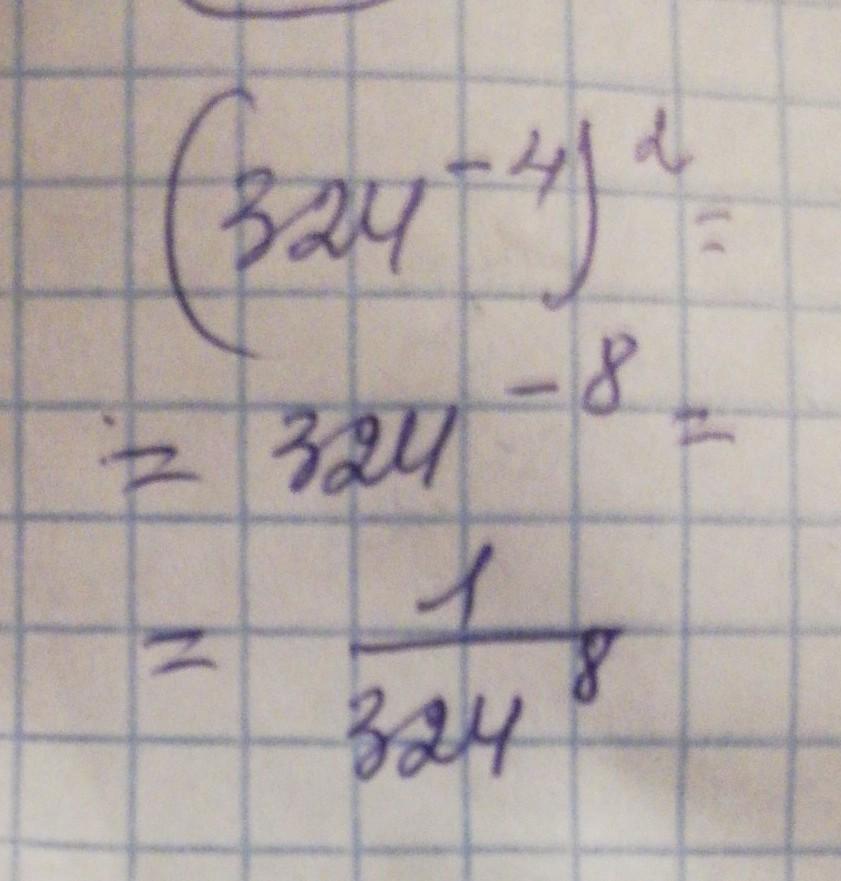 (324⁻⁴)² =
= 324⁻⁸ =
= 1/324⁸